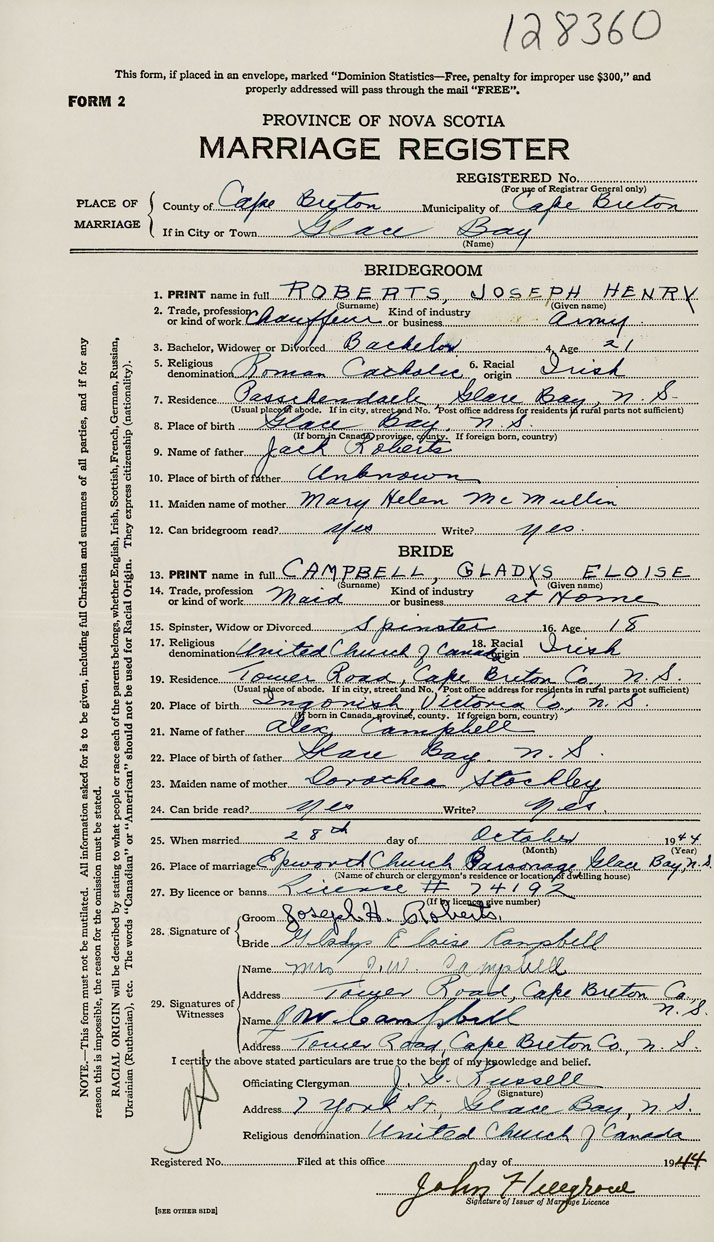 128360
This form, if placed in an envelope, marked "Dominion Statistics—Free, penalty for improper use $300," and
properly addressed will pass through the mail "FREE".
FORM 2
PROVINCE OF NOVA SCOTIA
MARRIAGE REGISTER
REGISTERED No.
(For use of Registrar General only)
PLACE OF MARRIAGE
County of Cape Breton Municipality of Cape Breton
If in City or Town Glace Bay
(Name)
BRIDEGROOM
1. PRINT name in full ROBERTS, JOSEPH HENRY
(Surname) (Given name)
2. Trade, profession or kind of work Chauffeur Kind of industry or business Army
3. Bachelor, Widower or Divorced Bachelor 4. Age 21
5. Religious denomination Roman Catholic 6. Racial origin Irish
7. Residence Passchendaele Glace Bay, N. S.
(Usual place of abode. If in city, street and No. Post office address for residents in rural parts not sufficient)
8. Place of birth Glace Bay, N. S.
(If born in Canada, province, county. If foreign born, country)
9. Name of father Jack Roberts
10. Place of birth of father Unknown
11. Maiden name of mother Mary Helen McMullin
12. Can bridegroom read? yes Write? yes.
BRIDE
13. PRINT name in full CAMPBELL, GLADYS ELOISE
(Surname) (Given name)
14. Trade, profession or kind of work Maid Kind of industry or business at Home
15. Spinster, Widow or Divorced Spinster 16. Age 18
17. Religious denomination United Church of Canada 18. Racial origin Irish
19. Residence Tower Road, Cape Breton Co., N. S.
(Usual place of abode. If in city, street and No. Post office address for residents in rural parts not sufficient)
20. Place of birth Ingonish, Victoria Co., N. S.
(If born in Canada, province, county. If foreign born, country)
21. Name of father Alex Campbell
22. Place of birth of father Glace Bay, N. S.
23. Maiden name of mother Dorothea Stockley
24. Can bride read? yes Write? yes.
25. When married 28th day of October 1944
(Month) (Year)
26. Place of marriage Epworth Church Parsonage Glace Bay, N. S.
(Name of church or clergyman's residence or location of dwelling house)
27. By licence or banns License # 74192
(If by licence give number)
28. Signature of
Groom Joseph H. Roberts.
Bride Gladys Eloise Campbell
29. Signatures of Witnesses
Name Mrs J. W. Campbell
Address Tower Road, Cape Breton Co., N. S.
Name J W Campbell
Address Tower Road, Cape Breton Co., N. S.
I certify the above stated particulars are true to the best of my knowledge and belief.
Officiating Clergyman J. G. Russell
(Signature)
Address 7 York St., Glace Bay, N. S.
Religious denomination United Church of Canada
Registered No. Filed at this office day of 1944
Signature of Issuer of Marriage Licence
[SEE OTHER SIDE]
NOTE.—This form must not be mutilated. All information asked for is to be given, including full Christian and surnames of all parties, and if for any
reason this is impossible, the reason for the omission must be stated.
RACIAL ORIGIN will be described by stating to what people or race each of the parents belongs, whether English, Irish, Scottish, French, German, Russian,
Ukrainian (Ruthenian), etc. The words "Canadian" or "American" should not be used for Racial Origin. They express citizenship (nationality).